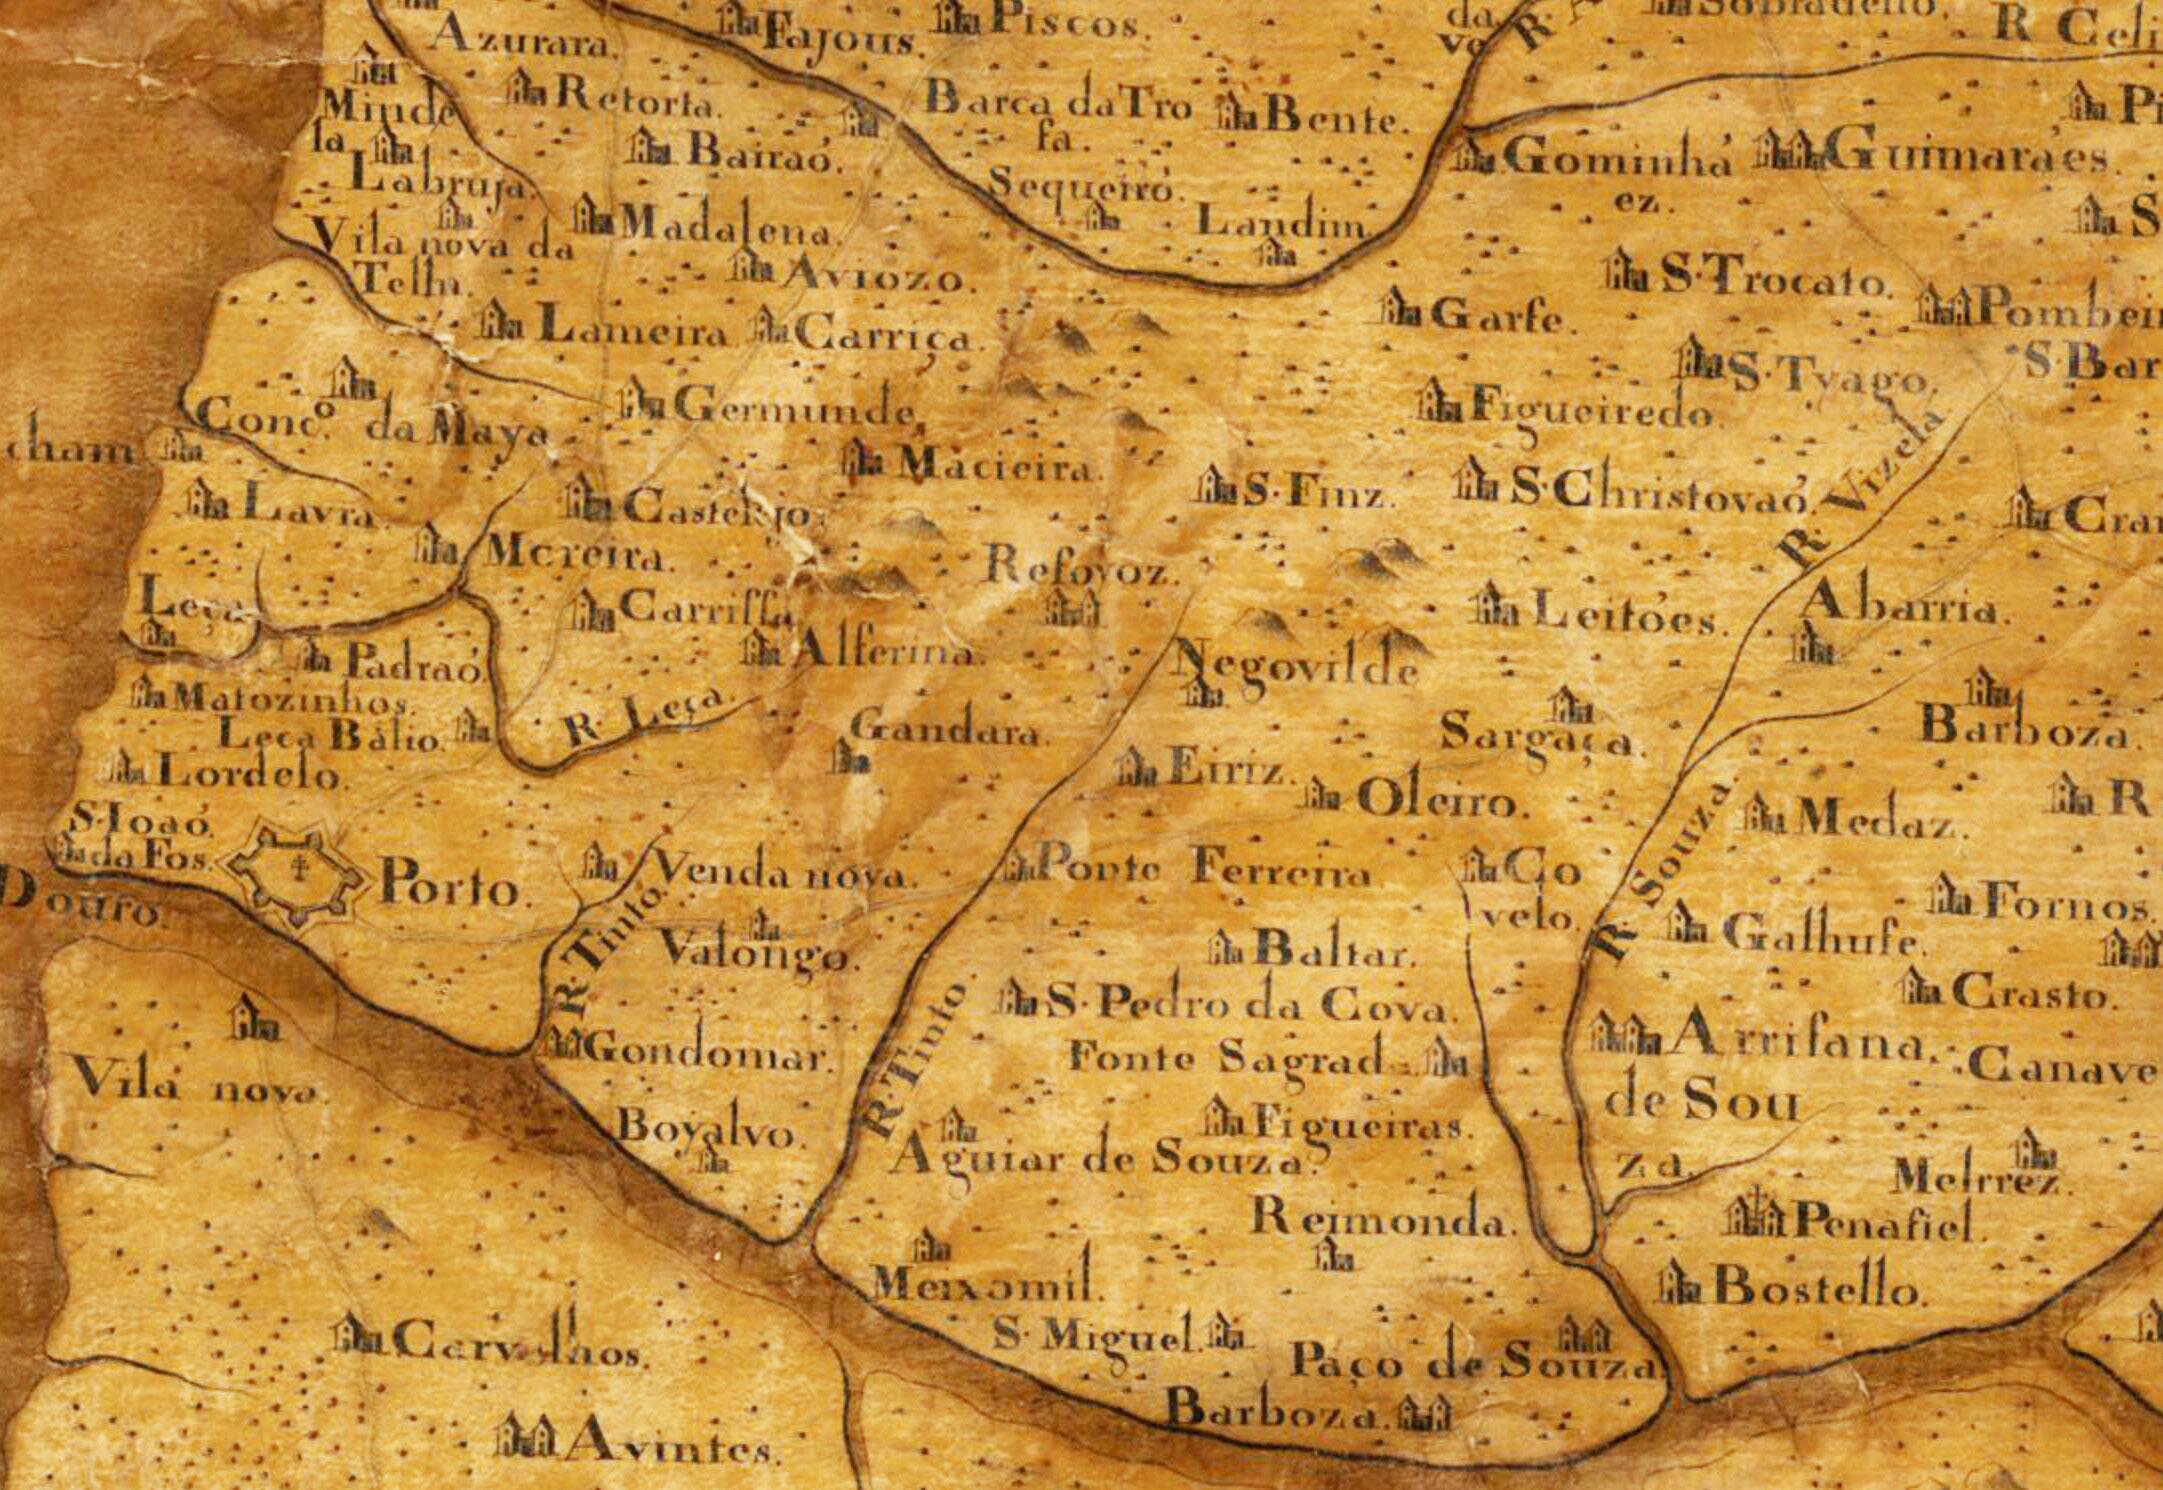 Azurara.
Fajous.
Piscos.
da
ve
R
Sobradello.
R Celi
Minde
la
Retorta.
Barca da Tro
fa.
Bente.
Pi
Bairaõ.
Gominhá
ez.
Guimaraes.
Labruja.
Sequeiró.
Landim.
Madalena.
S
Vila nova da
Telha.
Aviozo.
S. Trocato.
Lameira
Carriça.
Garfe.
Pombeir
S. Tyago.
S. Bar
Conc.º da Maya
Germunde,
Figueiredo.
cham
Macieira.
S. Finz.
S. Christovaõ.
R Vizela
Lavra.
Castelejo.
Cra
Moreira.
Refoyoz.
Leça
Carrissa
Leitões.
Abarria.
Padraõ
Alferina.
Negovilde
Matozinhos.
R. Leça.
Gandara.
Sargaça.
Barboza.
Leca Balio.
Lordelo.
Eiriz.
Oleiro.
Medaz.
R
S. Ioaõ
da Fos.
Porto.
Venda nova.
Ponte Ferreira
Co
velo.
R Souza.
Fornos.
Douro.
R. Tinto.
Valongo.
Baltar.
Galhufe.
S. Pedro da Cova.
Crasto.
Gondomar.
R. Tinto.
Fonte Sagrad
Arrifana.
de Sou
za.
Canave
Vila nova.
Boyalvo.
Figueiras.
Aguiar de Souza.
Melrrez.
Reimonda.
Penafiel.
Meixomil.
Bostello.
Carvalhos.
S. Miguel.
Paço de Souza
Barboza.
Avintes.